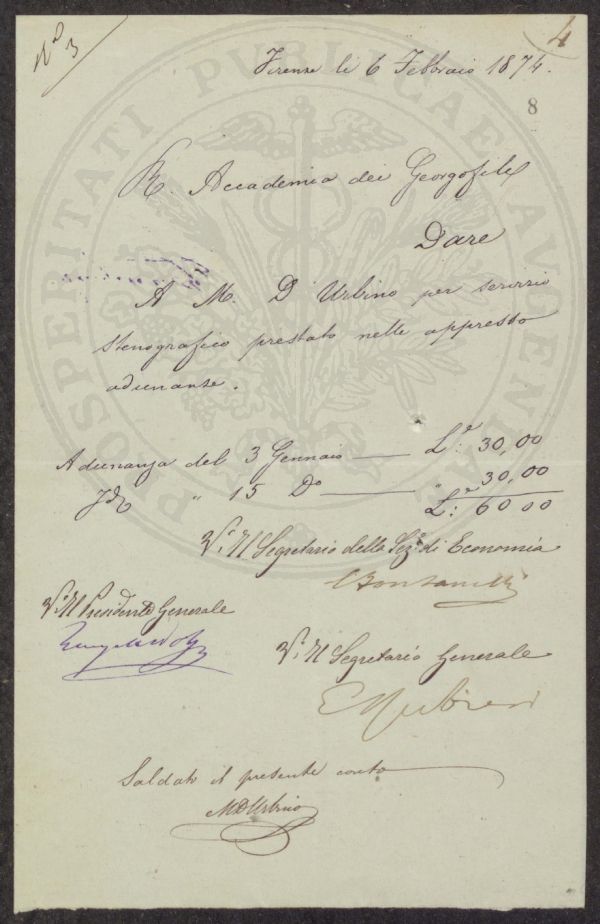 Nº 3
4
Firenze li 6 Febbraio 1874.
8
R. Accademia dei Georgofili
Dare
A M. D Urbino per servizio
stenografico prestato nelle appresso
adunanze.
Adunanza del 3 Gennaio — L: 30,00
Id " 15 Dº — " 30,00
L: 60 00
Vº Il Segretario della Sezº di Economia
C Fontanelli
Vº Il Presidente Generale
Vº Il Segretario Generale
Saldato il presente conto
M D Urbino
PROSPERITATI PVBLICAE AVGENDAE